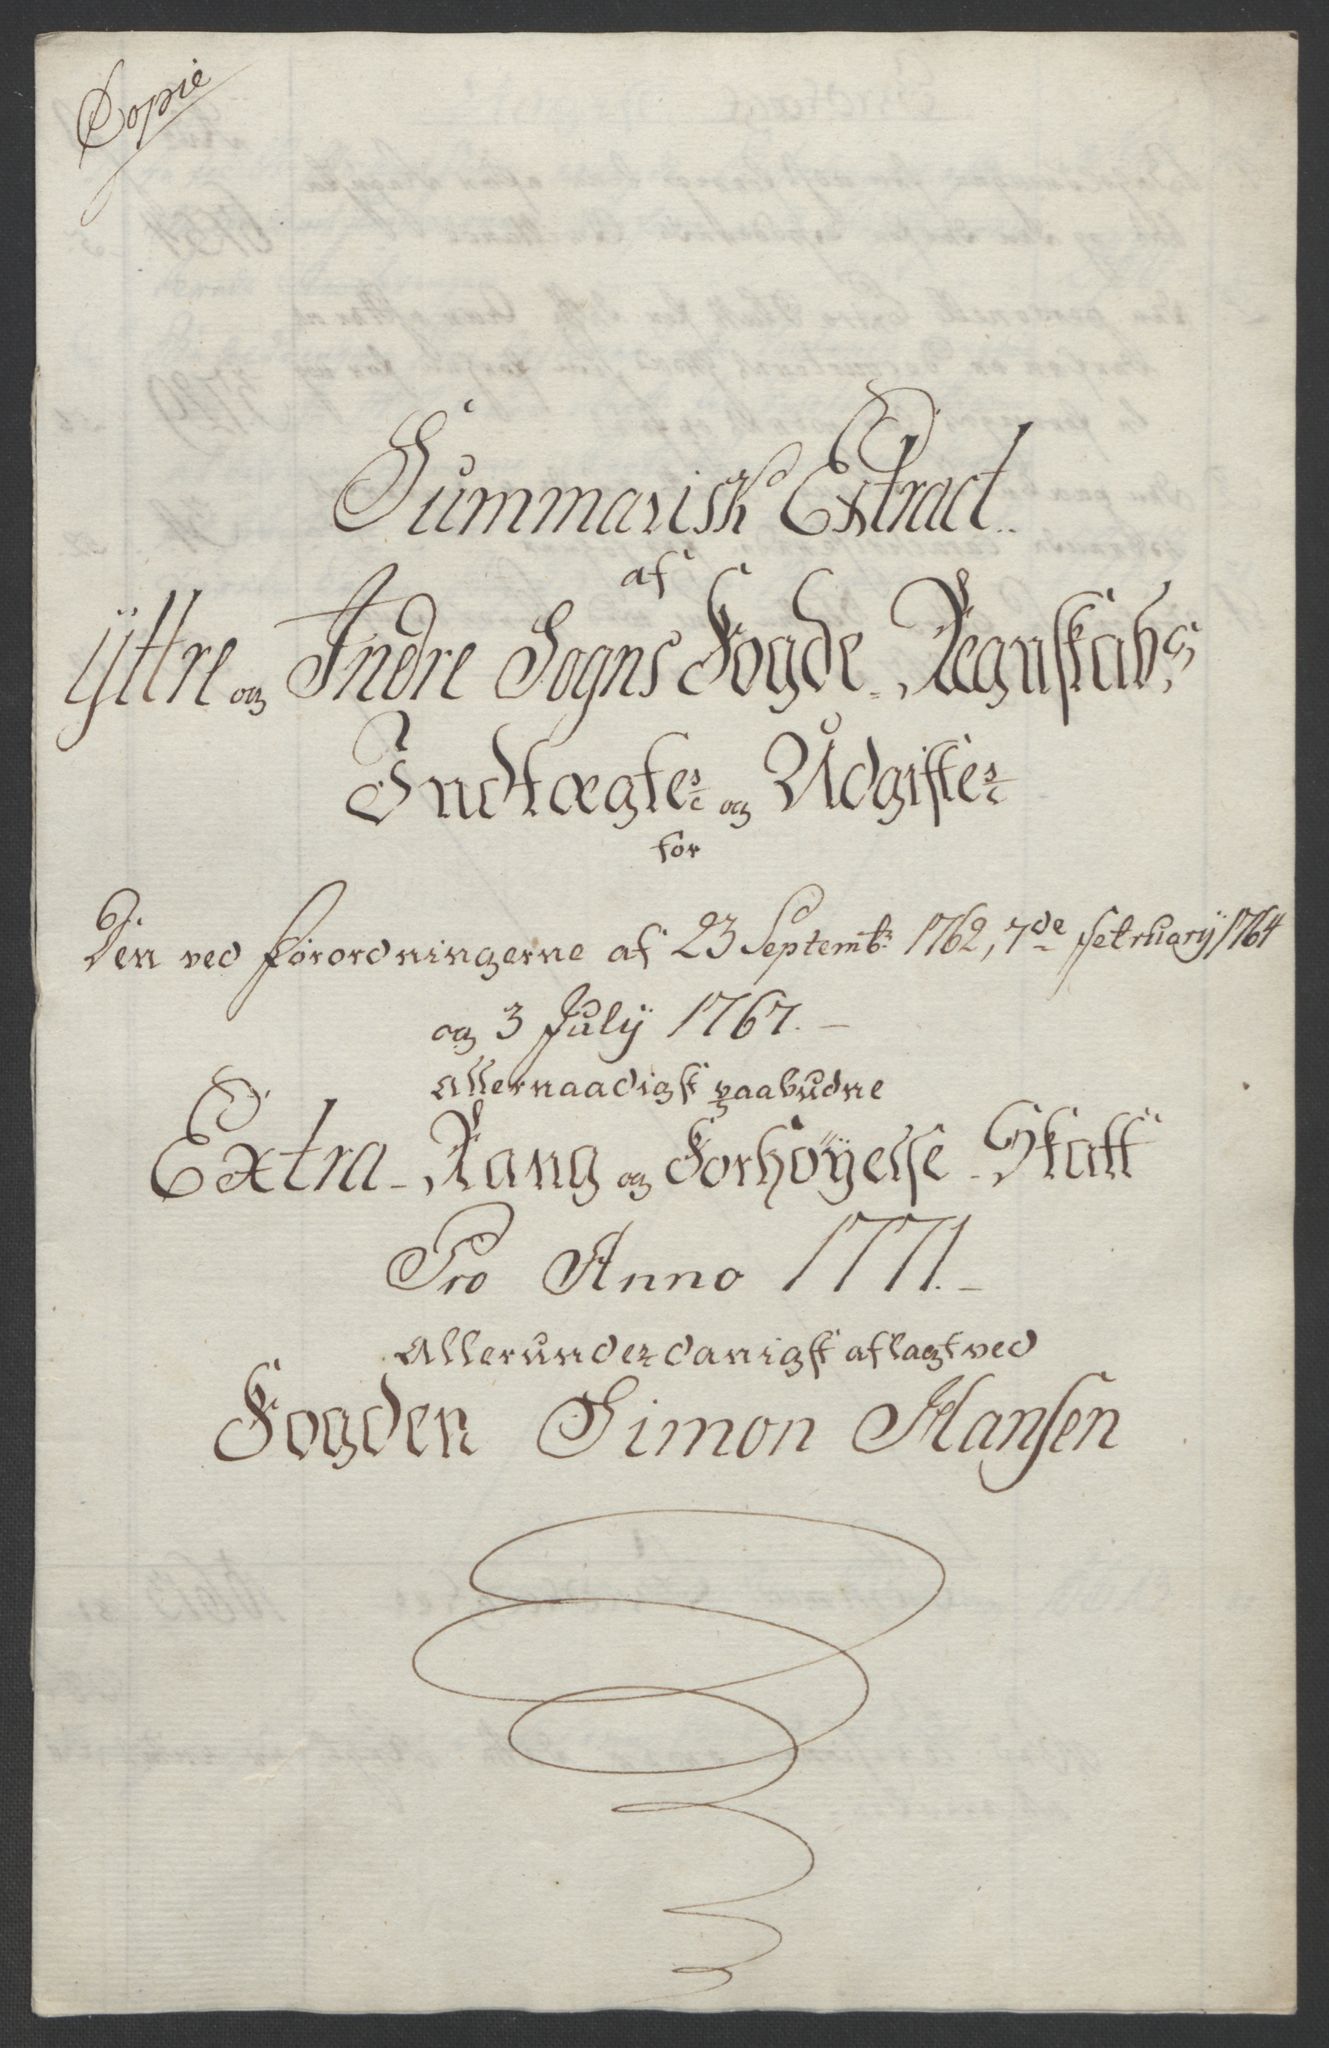 Copie
Summarisk Extract
af
Yttre og Indre Sogns Fogde-Regnskabs
Indtægter og Udgifter
for
Den ved Forordningerne af 23 Septembr 1762, 7de februarÿ 1764
og 3 Julÿ 1767.
Allernaadigst paabudne
Extra-Rang og Forhøÿelse-Skatt
Pro Anno 1771.
Allerunderdanigst aflagt ved
Fogden Simon Hansen